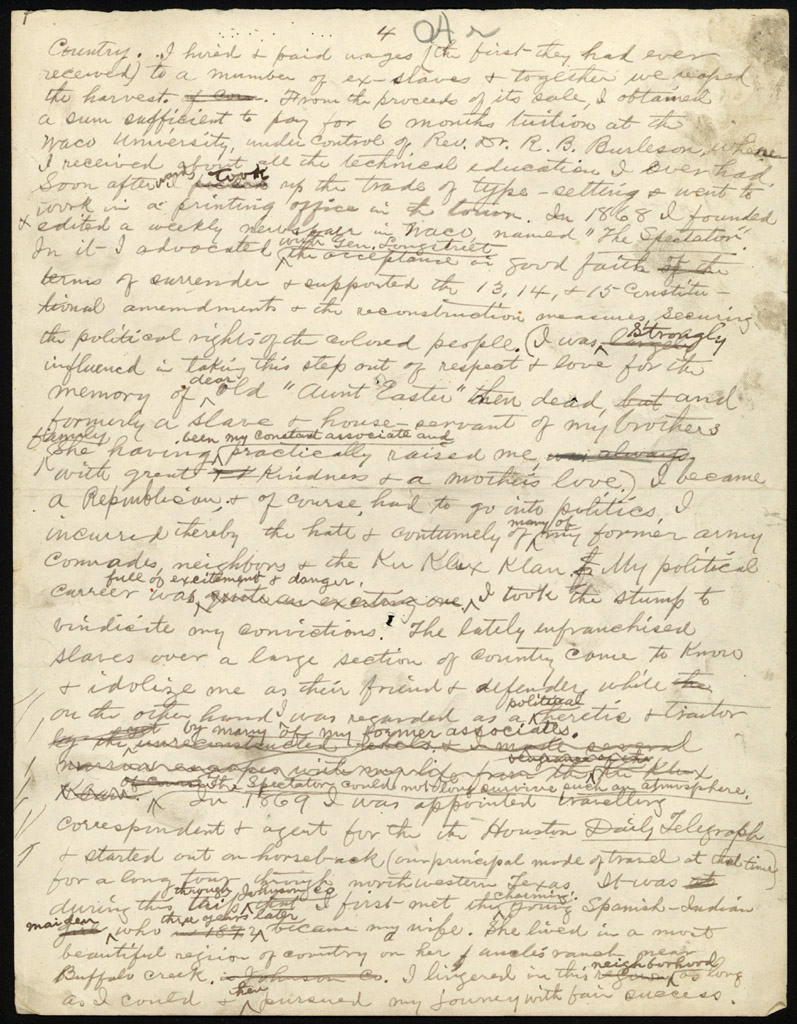 4
Country. I hired & paid wages (the first they had ever
received) to a number of ex-slaves & together we reaped
the harvest. From the proceeds of its sale, I obtained
a sum sufficient to pay for 6 months tuition at the
Waco University, under control of Rev. Dr. R. B. Burleson, where
I received about all the technical education I ever had.
Soon afterwards I took up the trade of type-setting & went to
work in a printing office in the town. In 1868 I founded
& edited a weekly newspaper in Waco named "The Spectator".
In it I advocated
with Gen. Longstreet
the acceptance in good faith of the
terms of surrender & supported the 13, 14, & 15 Constitu-
tional amendments & the reconstruction measures securing
the political rights of the colored people. (I was
strongly
influenced in taking this step out of respect & love for the
memory of
dear
old "Aunt Easter" then dead, but and
formerly a slave & house-servant of my brothers
family
She having
been my constant associate and
practically raised me, was always
with great kindness & a mother's love.) I became
a Republican, & of course, had to go into politics. I
incurred thereby the hate & contumely of
many of
my former army
comrades, neighbors & the Ku Klux Klan. My political
career was
full of excitement & danger.
quite an exciting one, I took the stump to
vindicate my convictions. The lately enfranchised
slaves over a large section of country came to know
& idolize me as their friend & defender, while the
on the other hand I was regarded as a
political
heretic & traitor
by many of my former associates.
unreconstructed rebels, & I made several
narrow escapes with my life from the
Ku Klux
Klan.
of course the Spectator could not long survive such an atmosphere.
In 1869 I was appointed travelling
correspondent & agent for the the Houston Daily Telegraph
& started out on horseback (our principal mode of travel at that time)
for a long tour through northwestern Texas. It was
during this trip
through Johnson Co
that I first met the
charming
young Spanish-Indian
maiden
who
three years later
became my wife. She lived in a most
beautiful region of country on her uncles ranch near
Buffalo creek. Johnson Co. I lingered in this
neighborhood
as long
as I could &
then
pursued my journey with fair success.